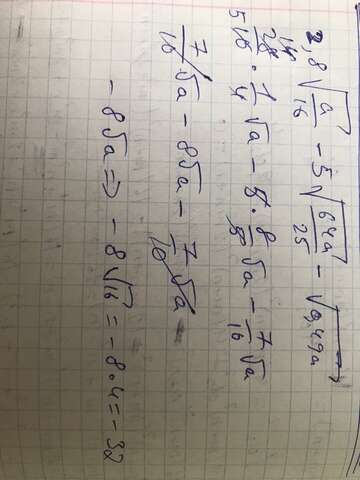 2,8√(a/16) - 5√(64a/25) - √(0,49a)
28/10 · 1/4 √a - 5 · 8/5 √a - 7/16 √a
7/10 √a - 8√a - 7/10 √a
- 8√a ⇒ - 8√16 = - 8 · 4 = - 32